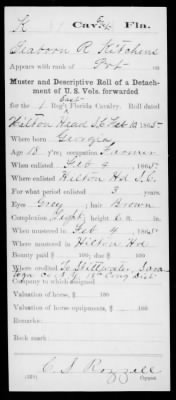 K Cav. Fla.
Seaborn R Kitchens
Appears with rank of Pvt
Muster and Descriptive Roll of a Detach-
ment of U. S. Vols. forwarded
for the 1 Reg't East Florida Cavalry. Roll dated
Hilton Head S.C. Feb 186 5
Where born Georgia
Age y'rs; occupation Farmer
When enlisted Feb 4, 186 5
Where enlisted Hilton Hd S.C.
For what period enlisted 3 years.
Eyes Grey; hair Brown
Complexion Light; height 6 ft. in.
When mustered in Feb 4, 186 5
Where mustered in Hilton Hd
Bounty paid $ 100; due $ 100
Where credited To Stillwater, Sara
toga Co. N.Y. 18" Cong Dist
Company to which assigned
Valuation of horse, $ 100
Valuation of horse equipments, $ 100
Remarks:
Book mark:
Copyist.